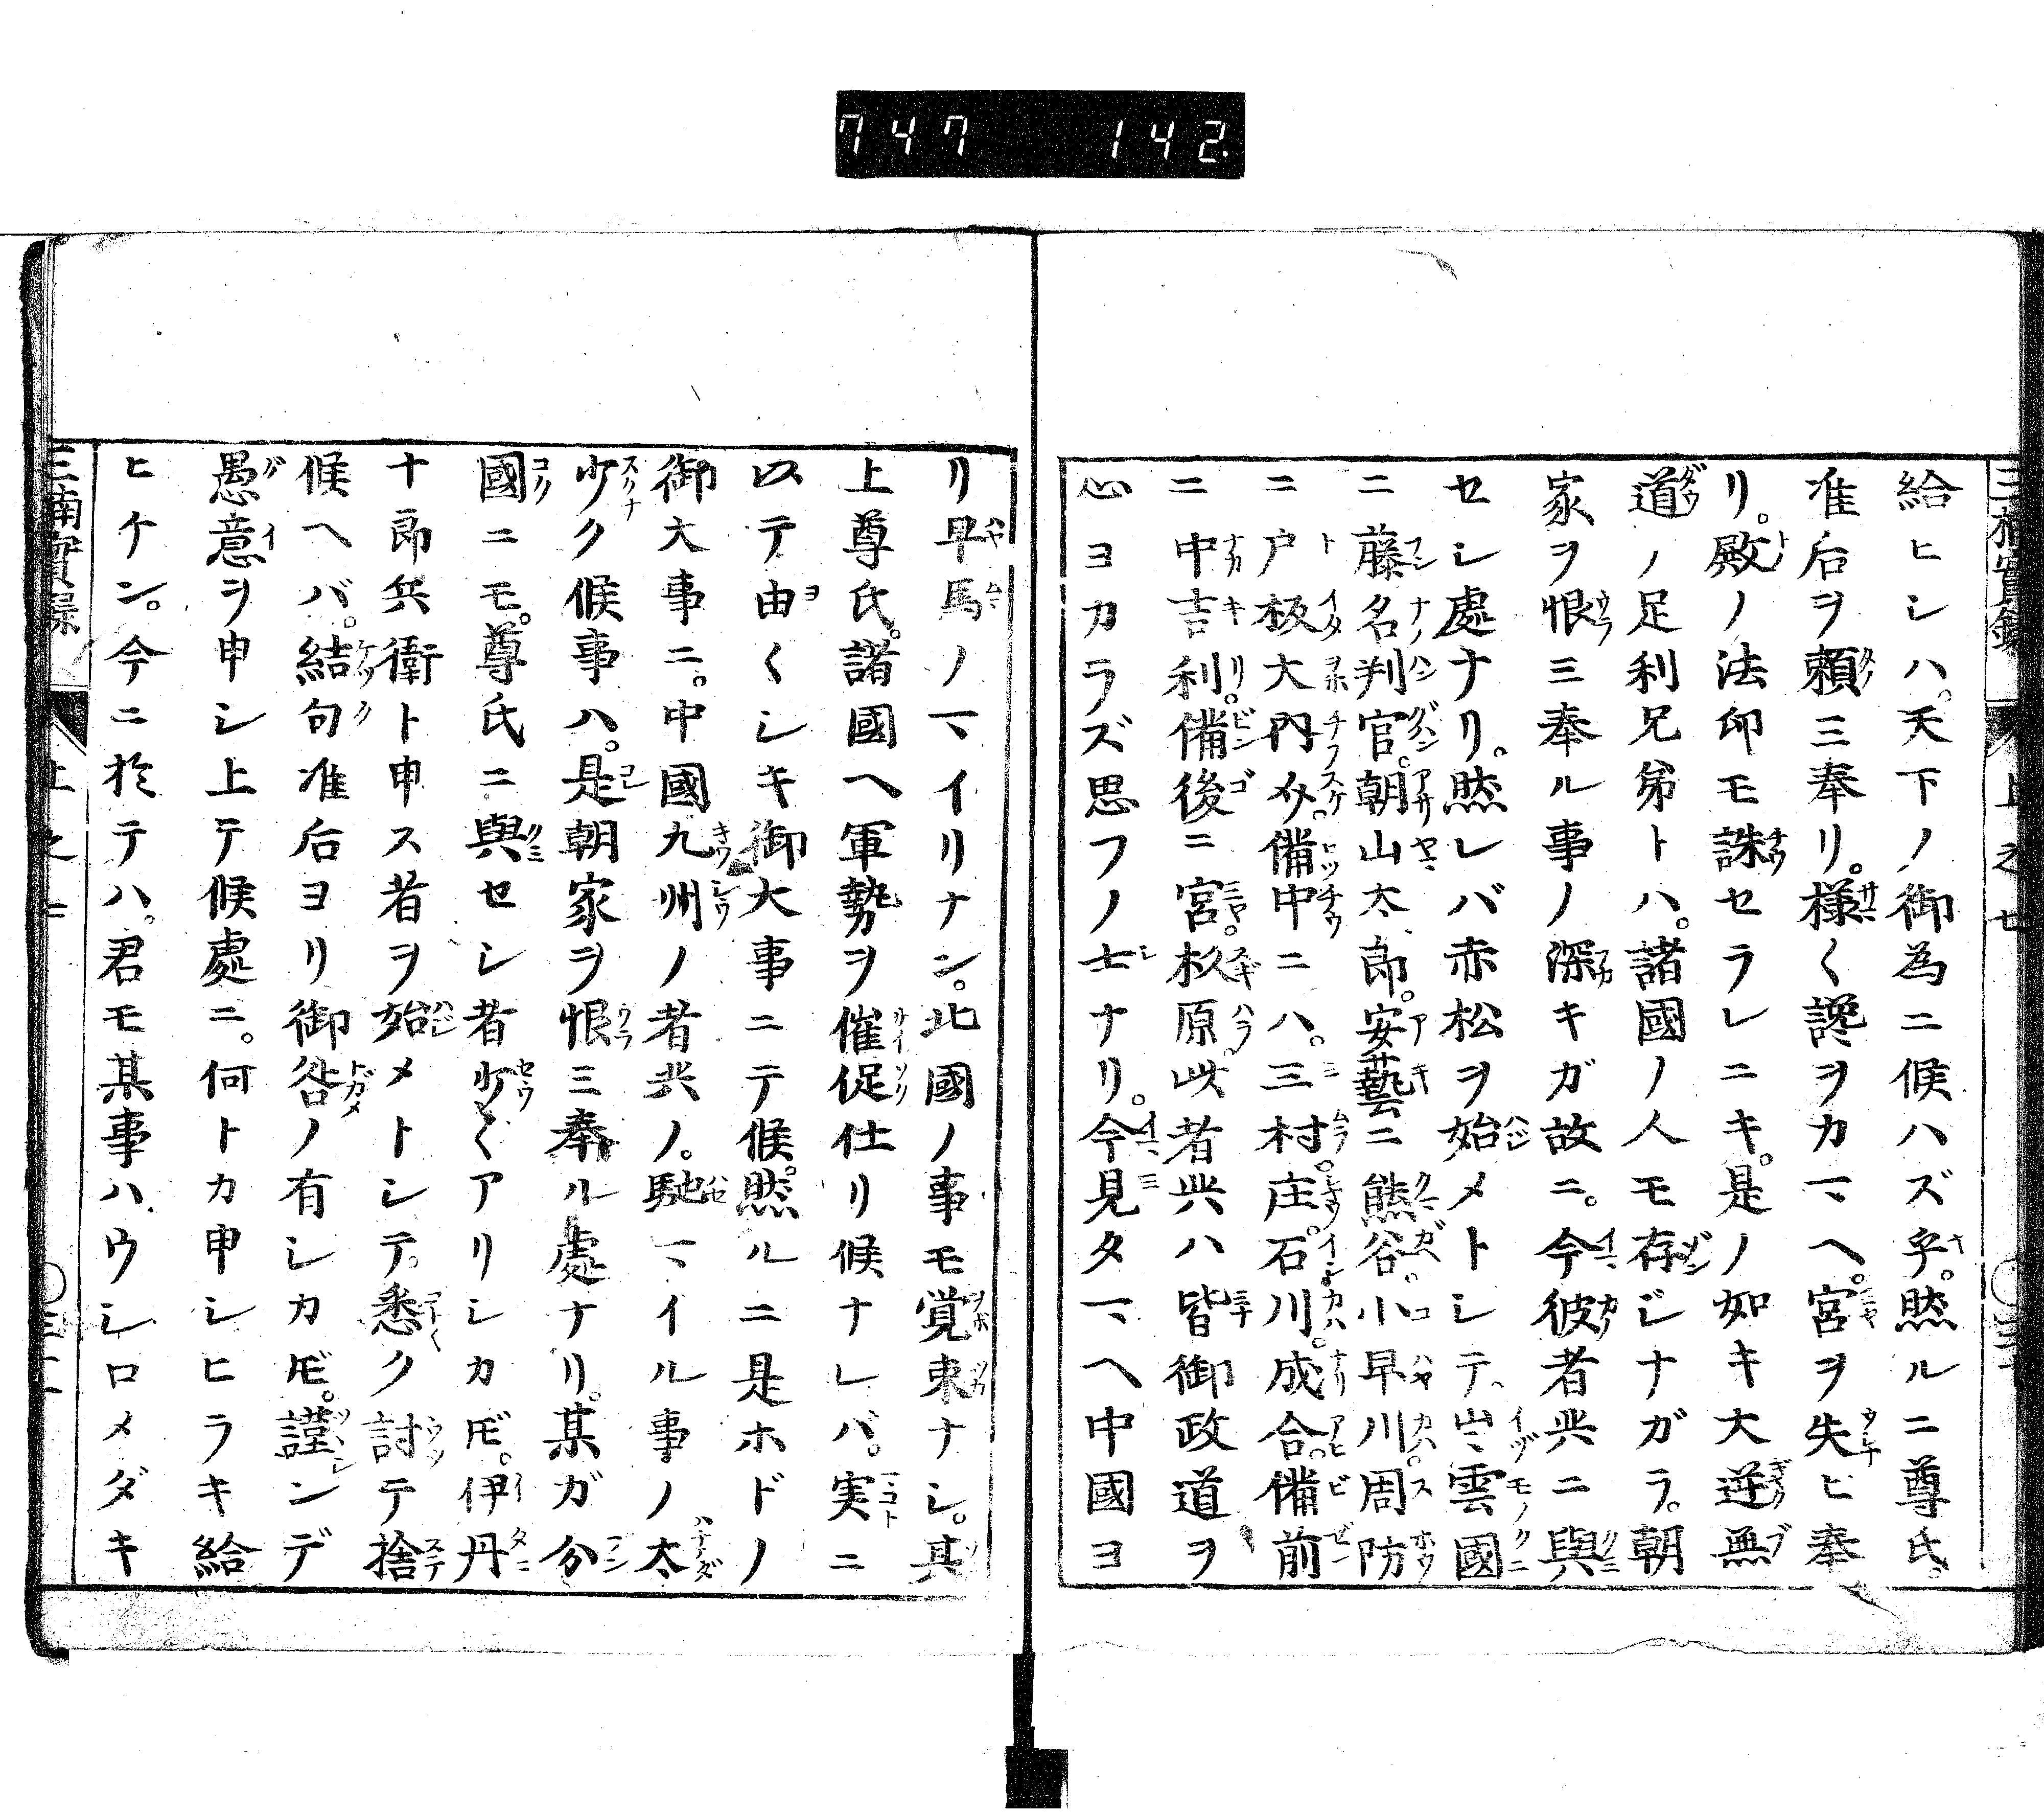 747 142
給ヒシハ。天下ノ御為ニ候ハズ乎。然ルニ尊氏、
准后ヲ頼ミ奉リ。様〱讒ヲカマヘ。宮ヲ失ヒ奉
リ。殿ノ法印モ誅セラレニキ。是ノ如キ大逆無
道ノ足利兄弟トハ。諸國ノ人モ存ジナガラ。朝
家ヲ恨ミ奉ル事ノ深キガ故ニ。今彼者共ニ與
セシ處ナリ。然レバ赤松ヲ始メトシテ。出雲國
ニ藤名判官。朝山太郎。安藝ニ熊谷。小早川。周防
ニ戸板大内介。備中ニハ。三村。庄。石川。成合。備前
ニ中吉利。備後ニ宮。杦原。此者共ハ皆御政道ヲ
心ヨカラズ思フノ士ナリ。今見タマヘ中國ヨ
リ早馬ノマイリナン。北國ノ事モ覚束ナシ。其
上尊氏。諸國ヘ軍勢ヲ催促仕リ候ナレバ。実ニ
以テ由〱シキ御大事ニテ候。然ルニ是ホドノ
御大事ニ。中國九州ノ者共ノ。馳マイル事ノ太
少ク候事ハ。是朝家ヲ恨ミ奉ル處ナリ。某ガ分
國ニモ。尊氏ニ與セシ者少〱アリシカ𪜈。伊丹
十郎兵衛ト申ス者ヲ始メトシテ。悉ク討テ捨
候ヘバ。結句准后ヨリ御咎ノ有シカ𪜈。謹ンデ
愚意ヲ申シ上テ候處ニ。何トカ申シヒラキ給
ヒケン。今ニ於テハ。君モ某事ハ、ウシロメダキ